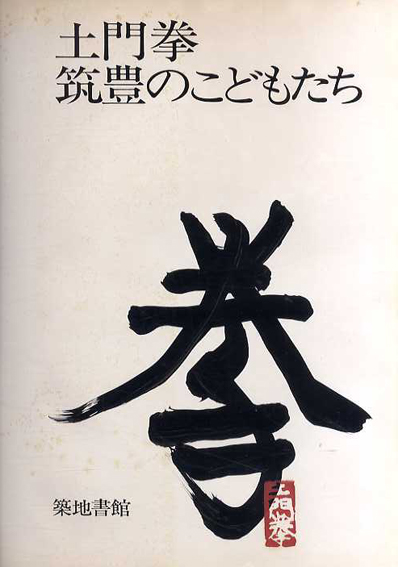 土門拳
筑豊のこどもたち
拳
土門拳
築地書館